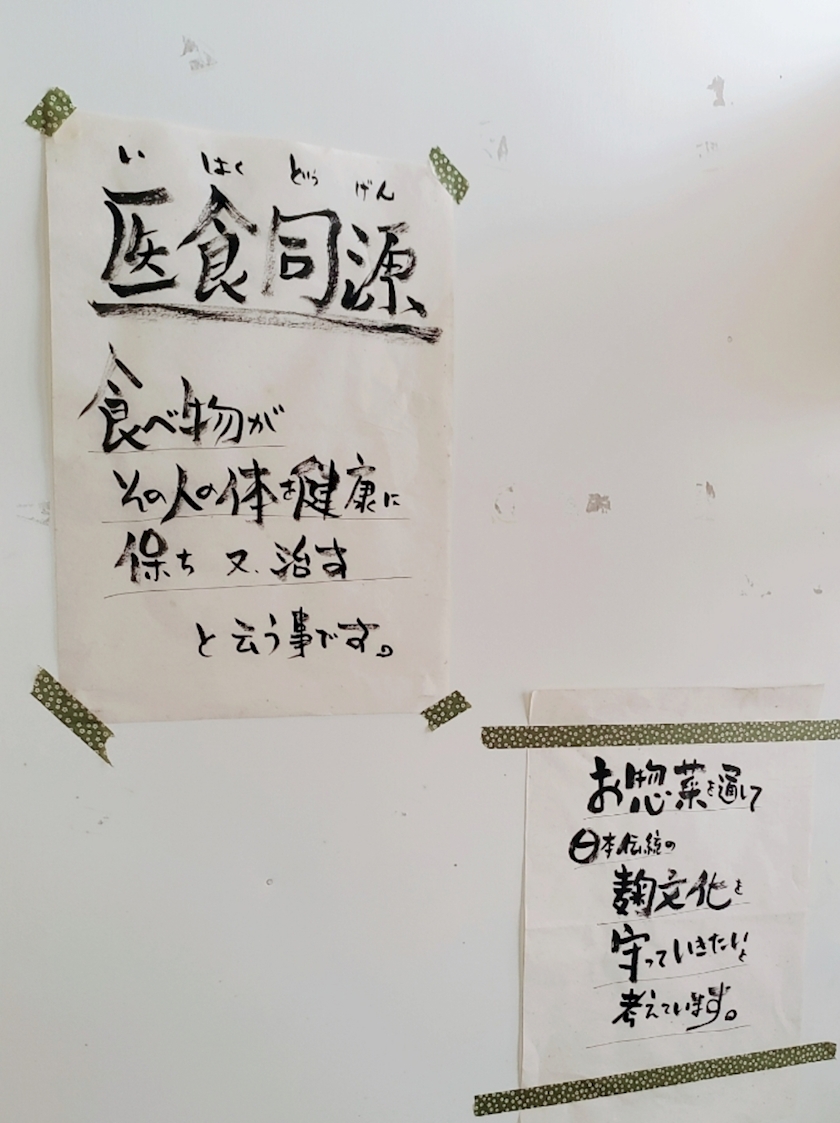 い はく どう げん
医食同源
食べ物が
その人の体を健康に
保ち 又、治す
と云う事です。
お惣菜を通して
日本伝統の
麹文化を
守っていきたいと
考えています。